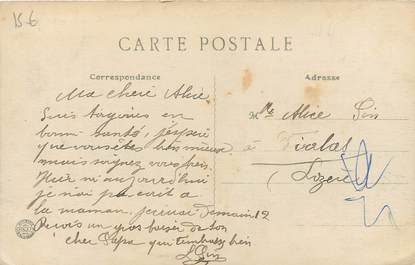 15-6
CARTE POSTALE
Correspondance
Adresse
Ma chere Alice
Suis toujours en
bonne santé, j'espère
que vous êtes bien mieux
mais soignez vous bien.
Hier ni aujourd'hui
je n'ai pas écrit a
la maman, demain 12
Recois un gros baiser de ton
cher Papa qui t'embrasse bien
Mlle Alice
à Vialas
(Lozère)